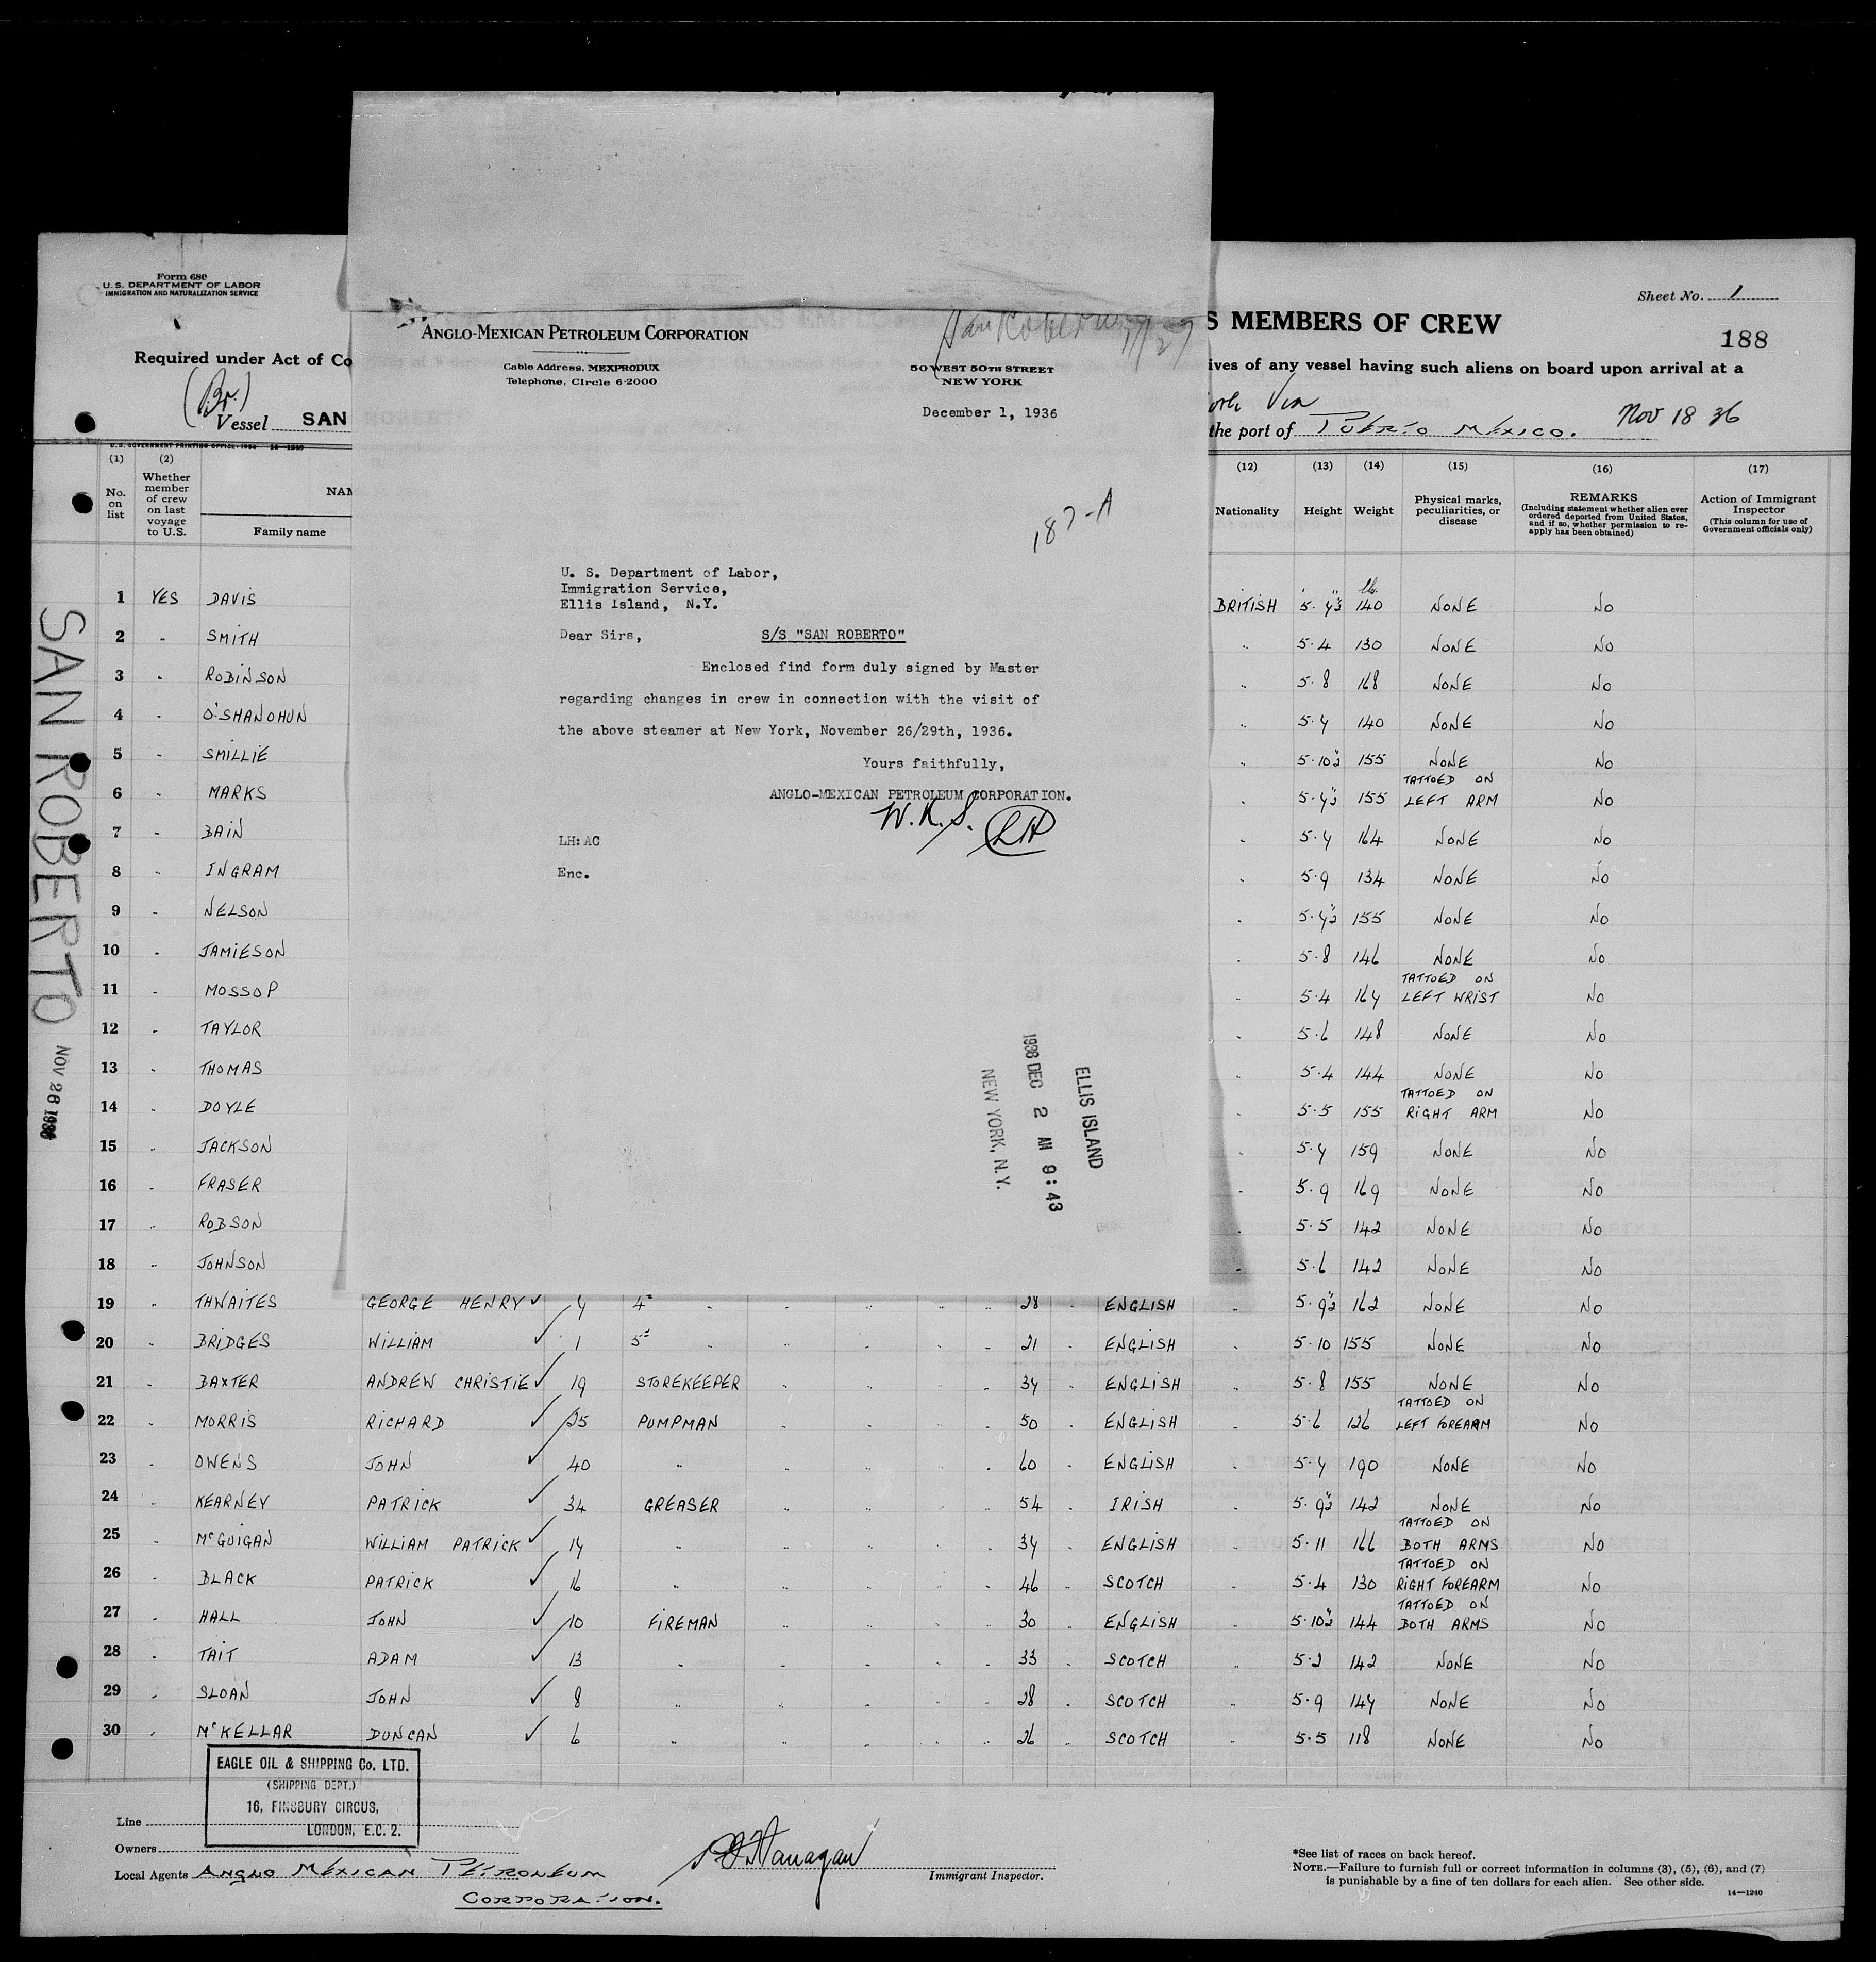 Form 680
U. S. DEPARTMENT OF LABOR
IMMIGRATION AND NATURALIZATION SERVICE
Required under Act of Co
(Br.)
Vessel SAN
U. S. GOVERNMENT PRINTING OFFICE: 1936 14-1240
Sheet No. 1
S MEMBERS OF CREW
188
ives of any vessel having such aliens on board upon arrival at a
ork Via
the port of PUERTO MEXICO. Nov 18 36
ANGLO-MEXICAN PETROLEUM CORPORATION
Cable Address, MEXPRODUX
Telephone, CIrcle 6-2000
San Roberto 11/27
50 WEST 50TH STREET
NEW YORK
December 1, 1936
187-A
U. S. Department of Labor,
Immigration Service,
Ellis Island, N.Y.
Dear Sirs, S/S "SAN ROBERTO"
Enclosed find form duly signed by Master
regarding changes in crew in connection with the visit of
the above steamer at New York, November 26/29th, 1936.
Yours faithfully,
ANGLO-MEXICAN PETROLEUM CORPORATION.
W.K.S. LH
LH:AC
Enc.
ELLIS ISLAND
1936 DEC 2 AM 9:43
NEW YORK, N.Y.
SAN ROBERTO
NOV 26 1936
(1) (2) (12) (13) (14) (15) (16) (17)
No. on list
Whether member of crew on last voyage to U.S.
NAM
Family name
Nationality Height Weight
Physical marks, peculiarities, or disease
REMARKS
(Including statement whether alien ever ordered deported from United States, and if so, whether permission to reapply has been obtained)
Action of Immigrant Inspector
(This column for use of Government officials only)
1 YES DAVIS BRITISH 5. 7½ 140 NONE No
2 " SMITH " 5.4 130 NONE No
3 " ROBINSON " 5.8 168 NONE No
4 " O'SHANOHUN " 5.7 140 NONE No
5 " SMILLIE " 5.10½ 155 NONE No
6 " MARKS " 5.7½ 155 TATTOED ON LEFT ARM No
7 " BAIN " 5.7 164 NONE No
8 " INGRAM " 5.9 134 NONE No
9 " NELSON " 5.7½ 155 NONE No
10 " JAMIESON " 5.8 146 NONE No
11 " MOSSOP " 5.4 167 TATTOED ON LEFT WRIST No
12 " TAYLOR " 5.6 148 NONE No
13 " THOMAS " 5.4 144 NONE No
14 " DOYLE " 5.5 155 TATTOED ON RIGHT ARM No
15 " JACKSON " 5.7 159 NONE No
16 " FRASER " 5.9 169 NONE No
17 " ROBSON " 5.5 142 NONE No
18 " JOHNSON " 5.6 142 NONE No
19 " THWAITES GEORGE HENRY ✓ 7 4" " " " " 28 " ENGLISH " 5.9½ 162 NONE No
20 " BRIDGES WILLIAM ✓ 1 5" " " " " 21 " ENGLISH " 5.10 155 NONE No
21 " BAXTER ANDREW CHRISTIE ✓ 19 STOREKEEPER " " " " 37 " ENGLISH " 5.8 155 NONE No
22 " MORRIS RICHARD ✓ 25 PUMPMAN " " " " 50 " ENGLISH " 5.6 126 TATTOED ON LEFT FOREARM No
23 " OWENS JOHN ✓ 40 " " " " " 60 " ENGLISH " 5.7 190 NONE No
24 " KEARNEY PATRICK ✓ 34 GREASER " " " " 54 " IRISH " 5.9½ 142 NONE No
25 " McGUIGAN WILLIAM PATRICK ✓ 17 " " " " " 37 " ENGLISH " 5.11 166 TATTOED ON BOTH ARMS No
26 " BLACK PATRICK ✓ 16 " " " " " 46 " SCOTCH " 5.4 130 TATTOED ON RIGHT FOREARM No
27 " HALL JOHN ✓ 10 FIREMAN " " " " 30 " ENGLISH " 5.10½ 144 TATTOED ON BOTH ARMS No
28 " TAIT ADAM ✓ 13 " " " " " 33 " SCOTCH " 5.2 142 NONE No
29 " SLOAN JOHN ✓ 8 " " " " " 28 " SCOTCH " 5.9 147 NONE No
30 " McKELLAR DUNCAN ✓ 6 " " " " " 26 " SCOTCH " 5.5 118 NONE No
EAGLE OIL & SHIPPING Co. LTD.
(SHIPPING DEPT.)
16, FINSBURY CIRCUS,
LONDON, E.C. 2.
Line
Owners
Local Agents ANGLO MEXICAN PETROLEUM
CORPORATION.
Flanagan
Immigrant Inspector.
*See list of races on back hereof.
NOTE.—Failure to furnish full or correct information in columns (3), (5), (6), and (7)
is punishable by a fine of ten dollars for each alien. See other side.
14—1240